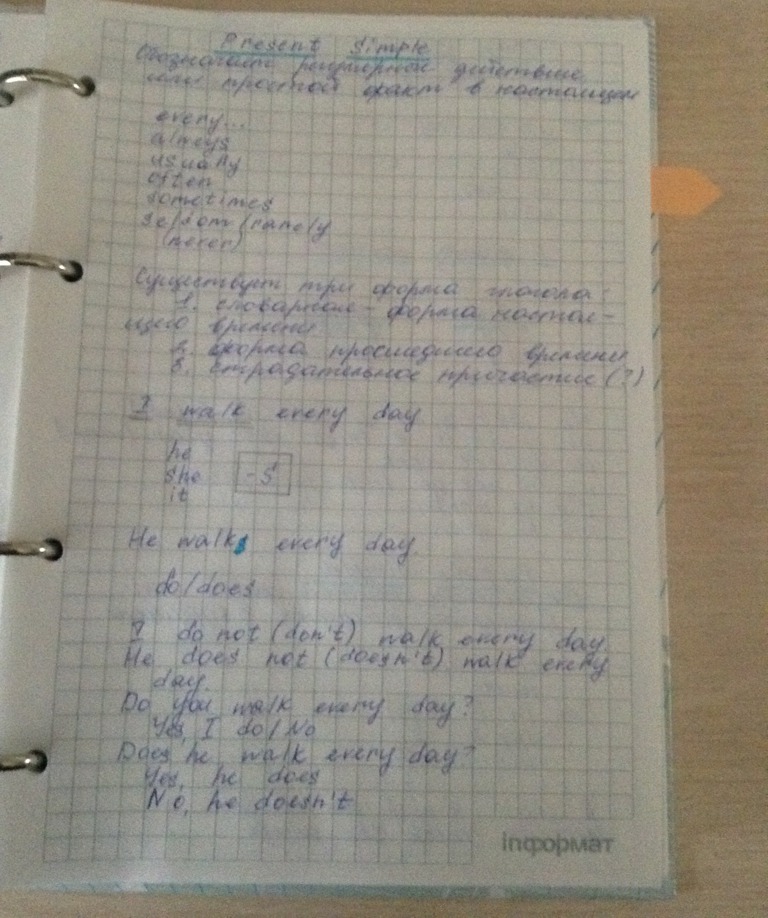 Present Simple
Обозначает регулярное действие
или простой факт в настоящем
every...
always
usually
often
sometimes
seldom (rarely
(never)
Существует три форма глагола:
1. словарная - форма настоя-
щего времени
2. форма прошедшего времени
3. страдательное причастие (?)
I walk every day
he
she -s
it
He walks every day.
do/does
I do not (don't) walk every day
He does not (doesn't) walk every
day.
Do you walk every day?
Yes, I do/No
Does he walk every day?
Yes, he does
No, he doesn't
inформат